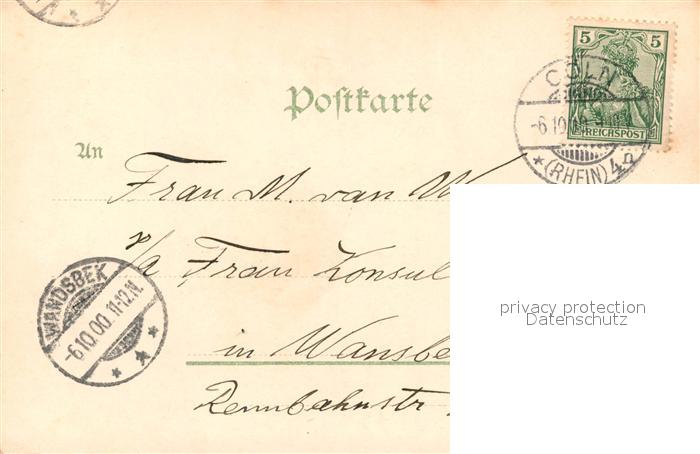 5 5
REICHSPOST
CÖLN
-6.10.00
* (RHEIN) 4n
Postkarte
An
Frau M. van W
p/a Frau Konsul
in Wansbe
Rennbahnstr.
WANDSBEK
-6.10.00.11-12.N.
* * *
privacy protection
Datenschutz